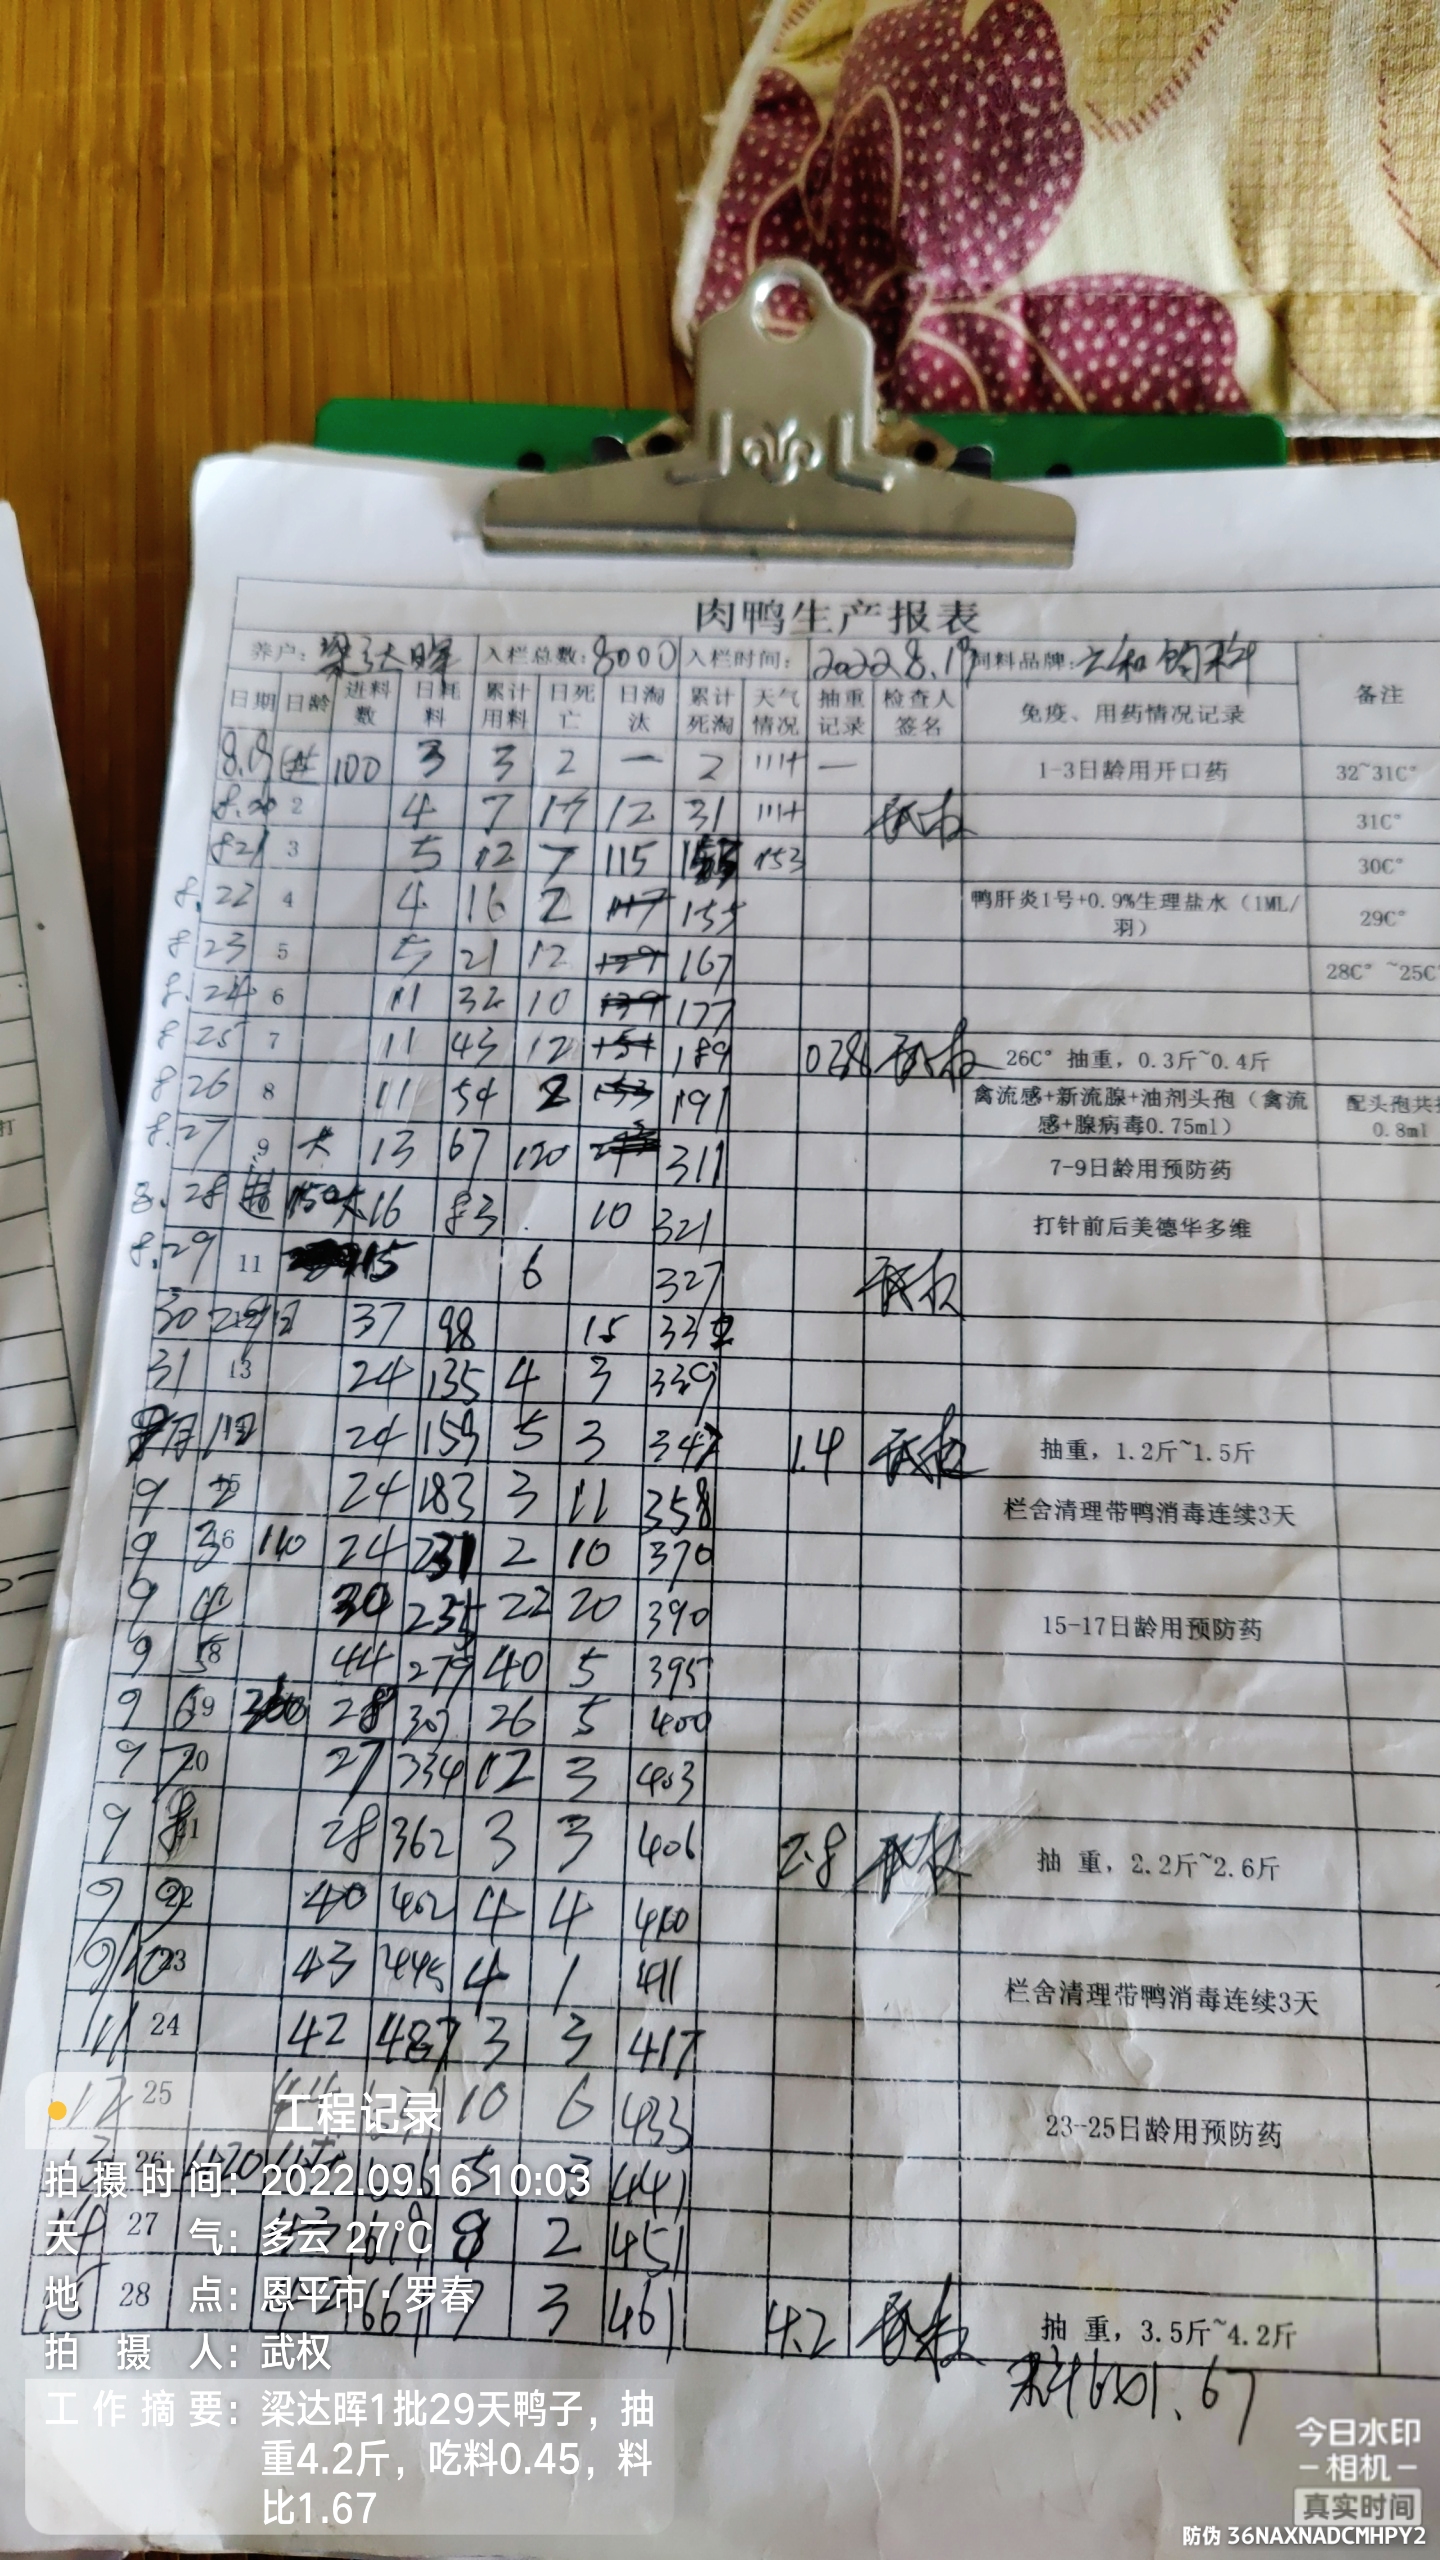 肉鸭生产报表
养户: 梁达晖 入栏总数: 8000 入栏时间: 2022.8.19 饲料品牌:
日期 日龄 进料数 日耗料 累计用料 日死亡 日淘汰 累计死淘 天气情况 抽重记录 检查人签名 免疫、用药情况记录 备注
8.19 100 3 3 2 一 2 — 1-3日龄用开口药 32~31C°
8.20 2 4 7 17 12 31 武权 31C°
8.21 3 5 12 7 115 153 30C°
8.22 4 4 16 2 117 155 鸭肝炎1号+0.9%生理盐水（1ML/羽） 29C°
8 23 5 5 21 12 129 167 28C° ~25C°
8.24 6 11 32 10 139 177
8 25 7 11 43 12 151 189 武权 26C° 抽重，0.3斤~0.4斤
8 26 8 11 54 2 153 191 禽流感+新流腺+油剂头孢（禽流感+腺病毒0.75ml） 配头孢共 0.8ml
8.27 9 大 13 67 120 311 7-9日龄用预防药
8.28 150大 16 83 10 321 打针前后美德华多维
8.29 11 15 6 327 武权
30 37 98 15 332
31 13 24 135 4 3 339
24 159 5 3 347 1.4 武权 抽重，1.2斤~1.5斤
9 2 24 183 3 11 358 栏舍清理带鸭消毒连续3天
9 3 16 110 24 2 10 370
9 4 22 20 390 15-17日龄用预防药
9 5 18 44 279 40 5 395
9 6 19 28 307 26 5 400
9 7 20 27 334 12 3 403
9 8 21 28 362 3 3 406 2.8 武权 抽 重，2.2斤~2.6斤
9 9 22 40 402 4 4 410
9/10 23 43 445 4 1 411 栏舍清理带鸭消毒连续3天
11 24 42 487 3 3 417
12 25 10 6 433 23-25日龄用预防药
13 26 5 3 441
14 27 2 451
15 28 7 3 461 4.2 武权 抽 重，3.5斤~4.2斤
1.67
工程记录
拍摄时间: 2022.09.16 10:03
天气: 多云 27°C
地点: 恩平市·罗春
拍摄人: 武权
工作摘要: 梁达晖1批29天鸭子，抽
重4.2斤，吃料0.45，料
比1.67
今日水印
相机
真实时间
防伪 36NAXNADCMHPY2